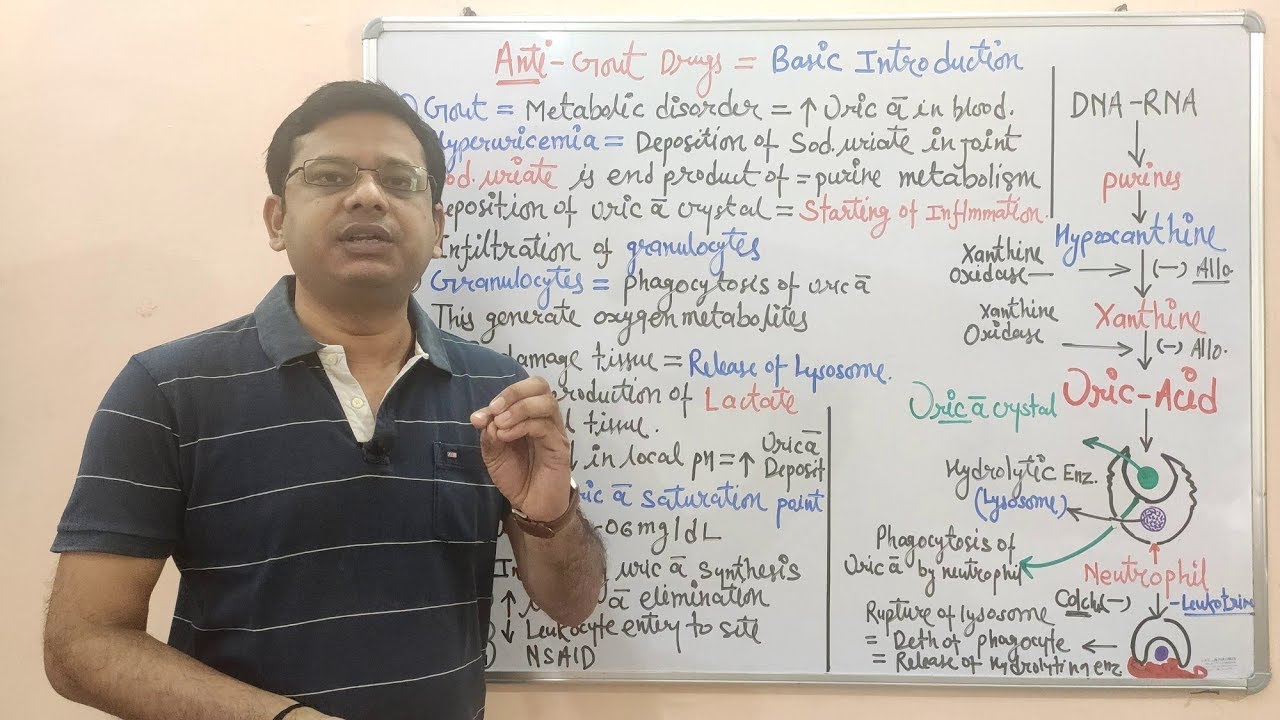 Anti-Gout Drugs = Basic Introduction
Gout = Metabolic disorder = ↑ Uric ā in blood.
Hyperuricemia = Deposition of Sod. uriate in joint
Sod. uriate is end product of = purine metabolism
Deposition of uric ā crystal = Starting of Inflmmation.
Infiltration of granulocytes
Granulocytes = phagocytosis of uric ā
This generate oxygen metabolites
damage tissue = Release of Lysosome.
production of Lactate
tissue.
in local pH = ↑ Uric ā Deposit
uric ā saturation point
06 mg/dL
uric ā synthesis
↑ ā elimination
↓ Leukocyte entry to site
NSAID
DNA-RNA
purines
Hypoxanthine
Xanthine Oxidase
(-) Allo.
Xanthine
Xanthine Oxidase
(-) Allo.
Uric-Acid
Uric ā crystal
Hydrolytic Enz.
(Lysosome)
Phagocytosis of
Uric ā by neutrophil
Neutrophil
Colchi(-)
-Leukotrine
Rupture of lysosome
= Deth of phagocyte
= Release of Hydrolyting enz